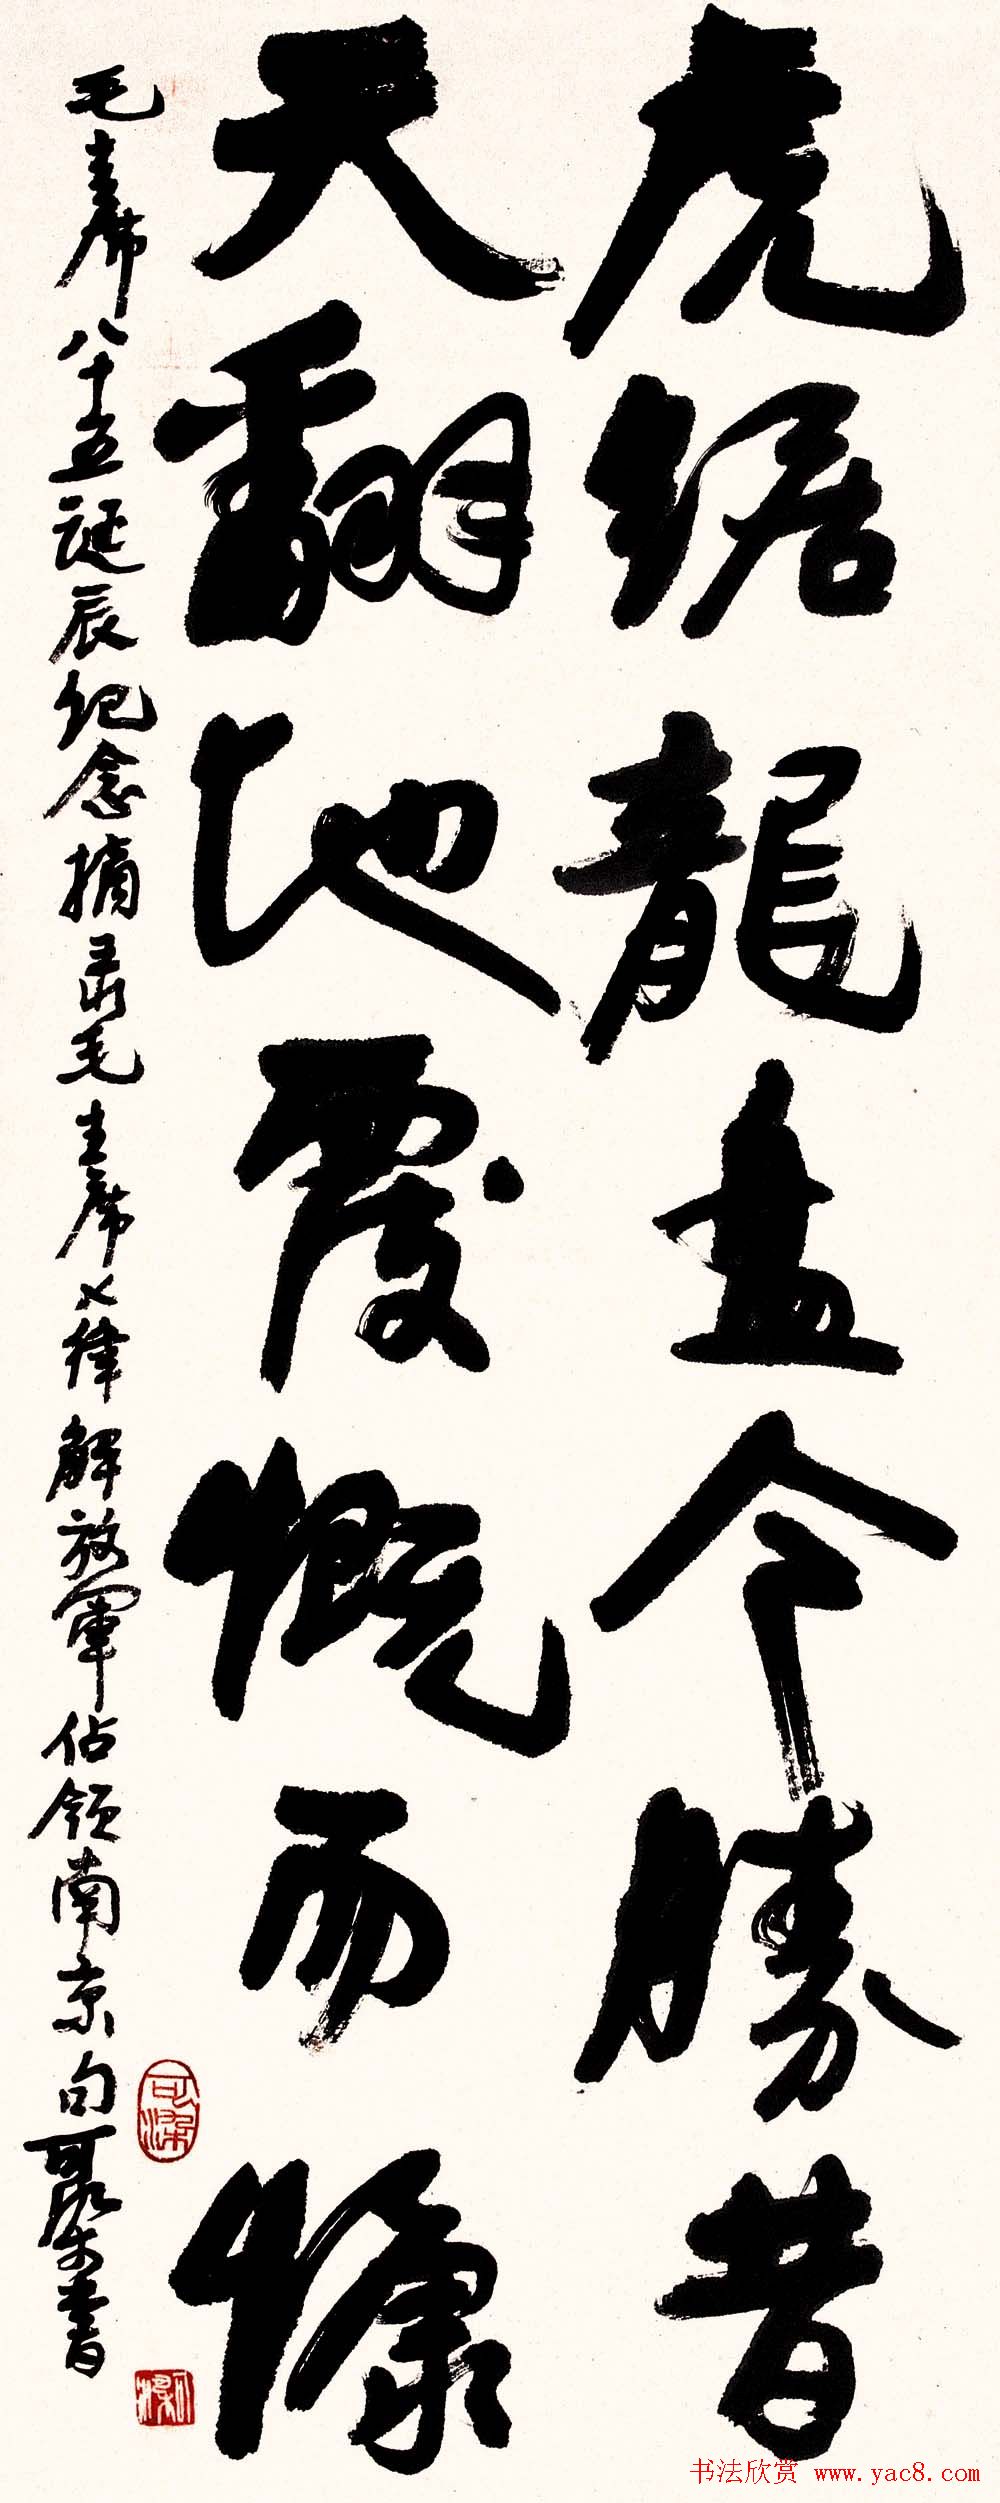 虎踞龍盘今勝昔
天翻地覆慨而慷
毛主席八十五诞辰纪念摘录毛主席七律解放軍佔领南京句可染書
可染
书法欣赏 www.yac8.com